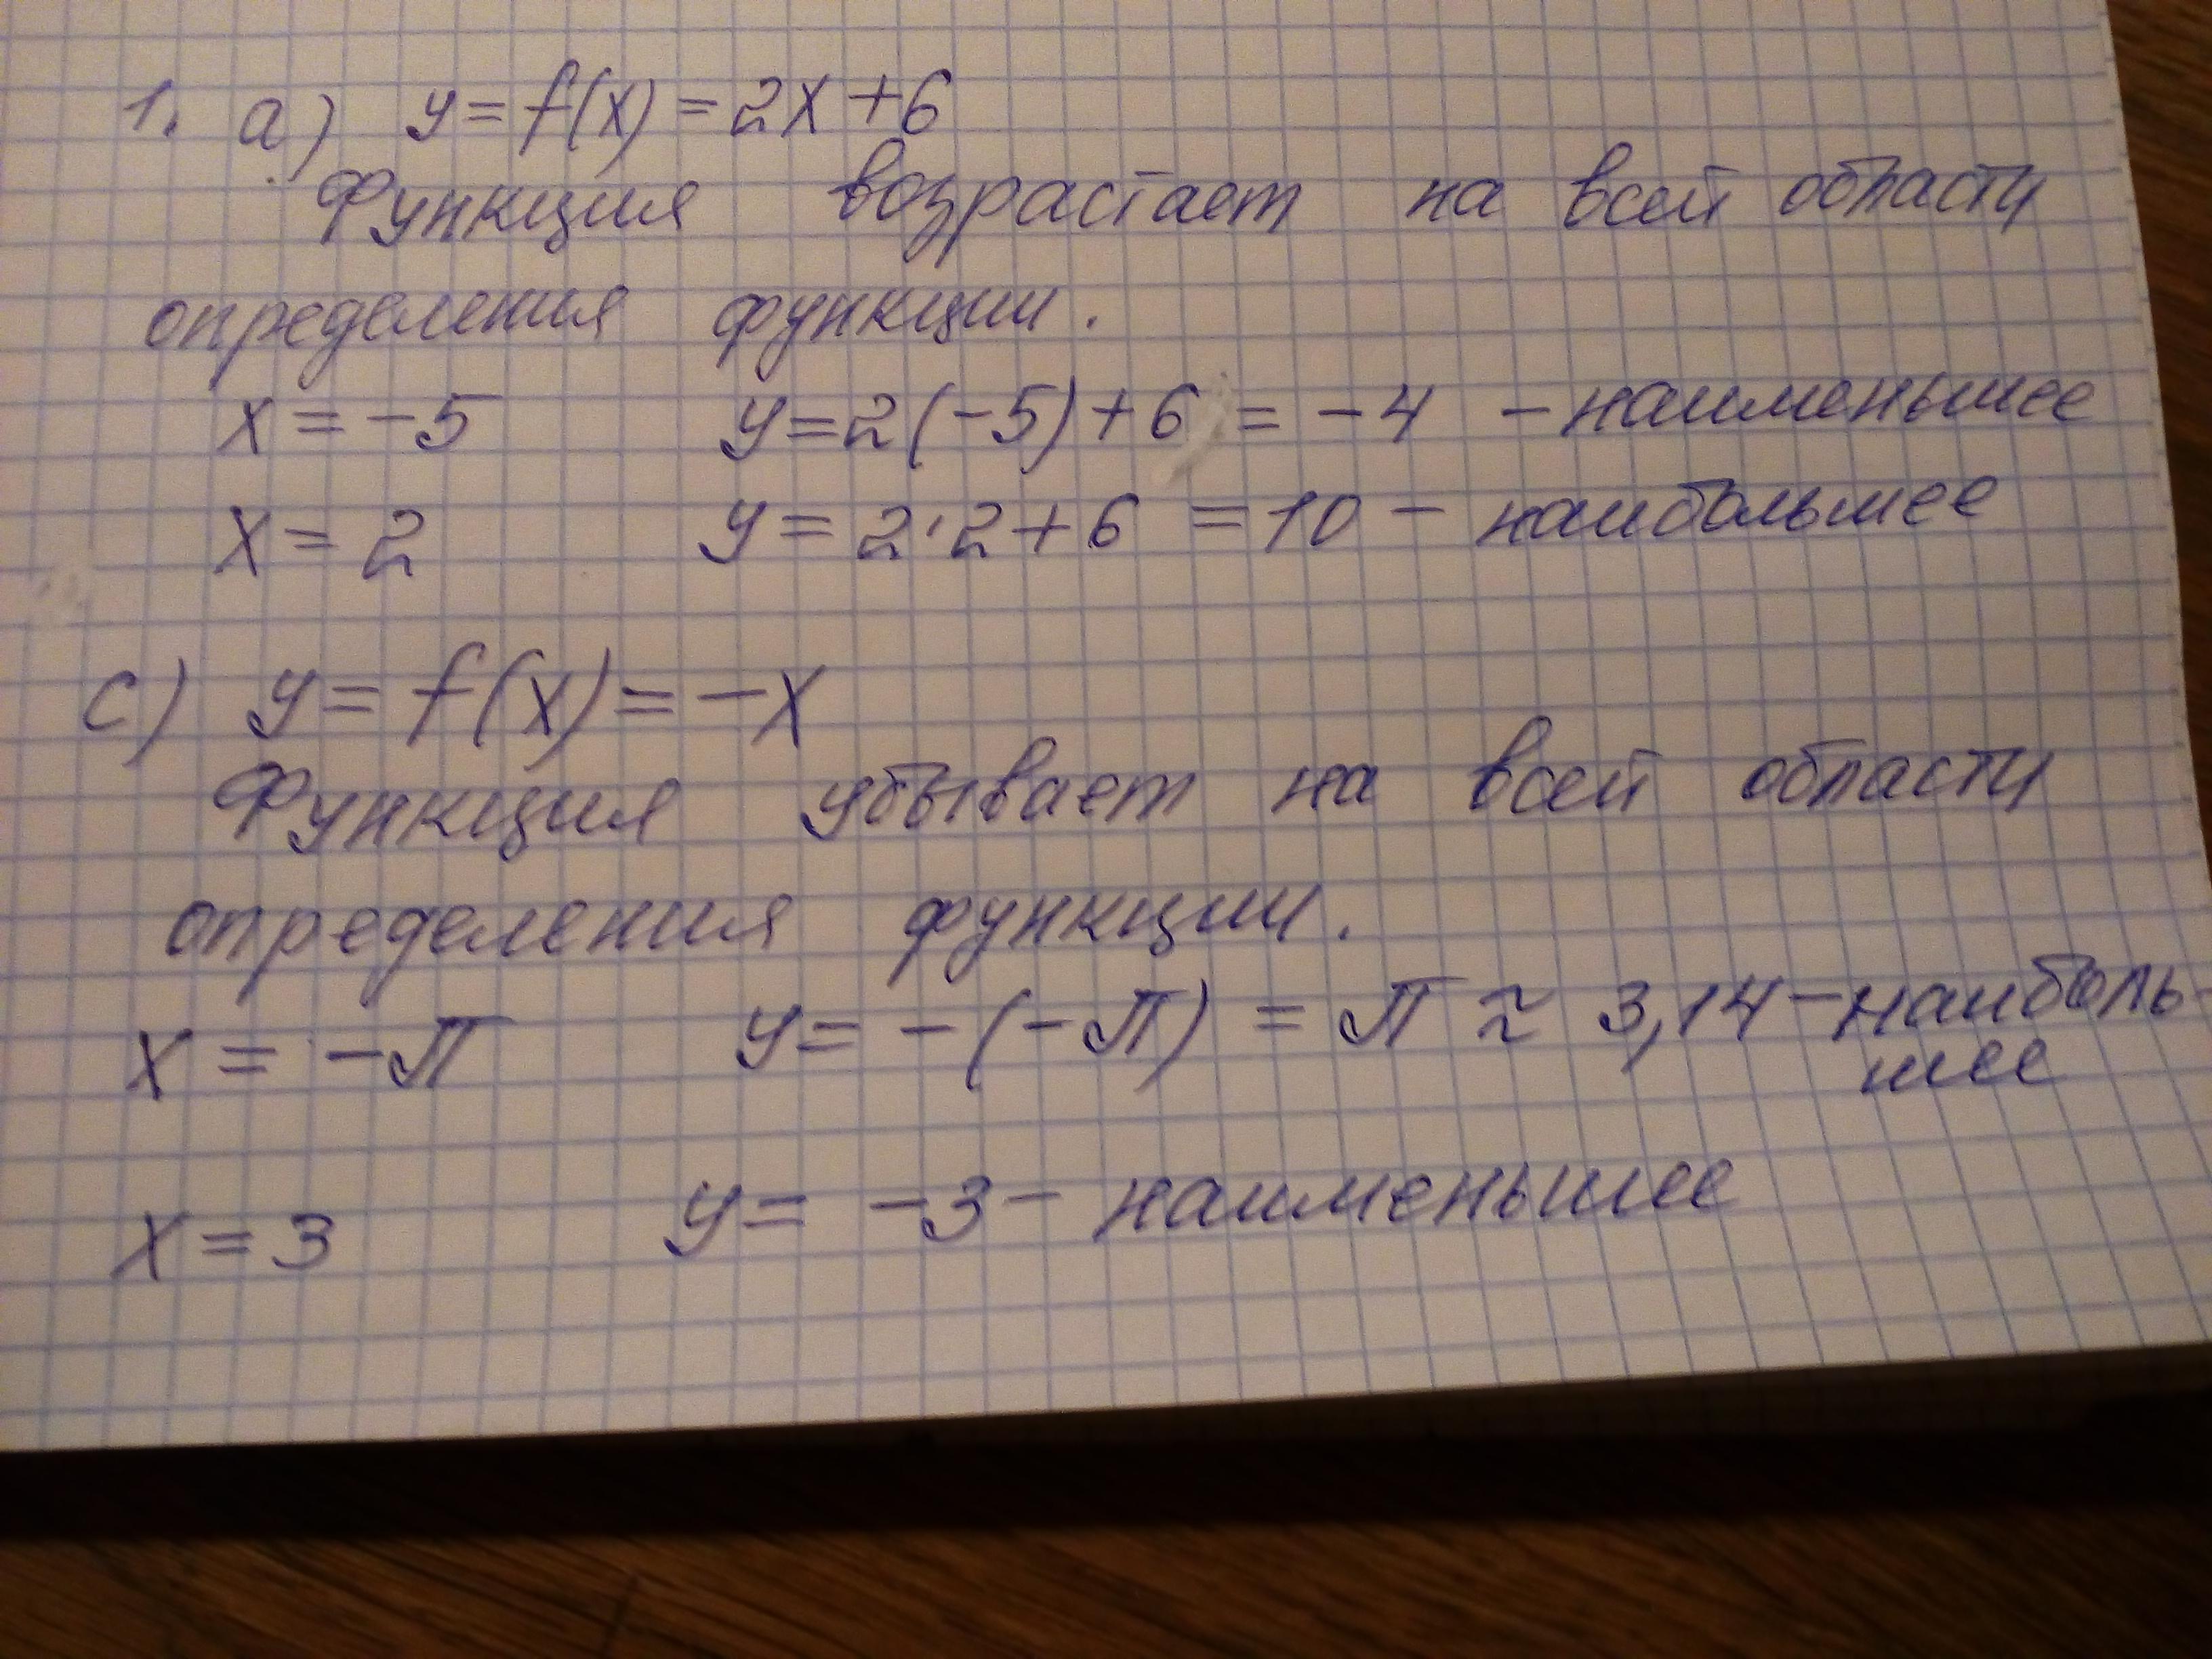 1. a) y = f(x) = 2x + 6
Функция возрастает на всей области
определения функции.
x = -5 y = 2(-5) + 6 = -4 - наименьшее
x = 2 y = 2·2 + 6 = 10 - наибольшее
c) y = f(x) = -x
Функция убывает на всей области
определения функции.
x = -π y = -(-π) = π ≈ 3,14 - наиболь-
шее
x = 3 y = -3 - наименьшее